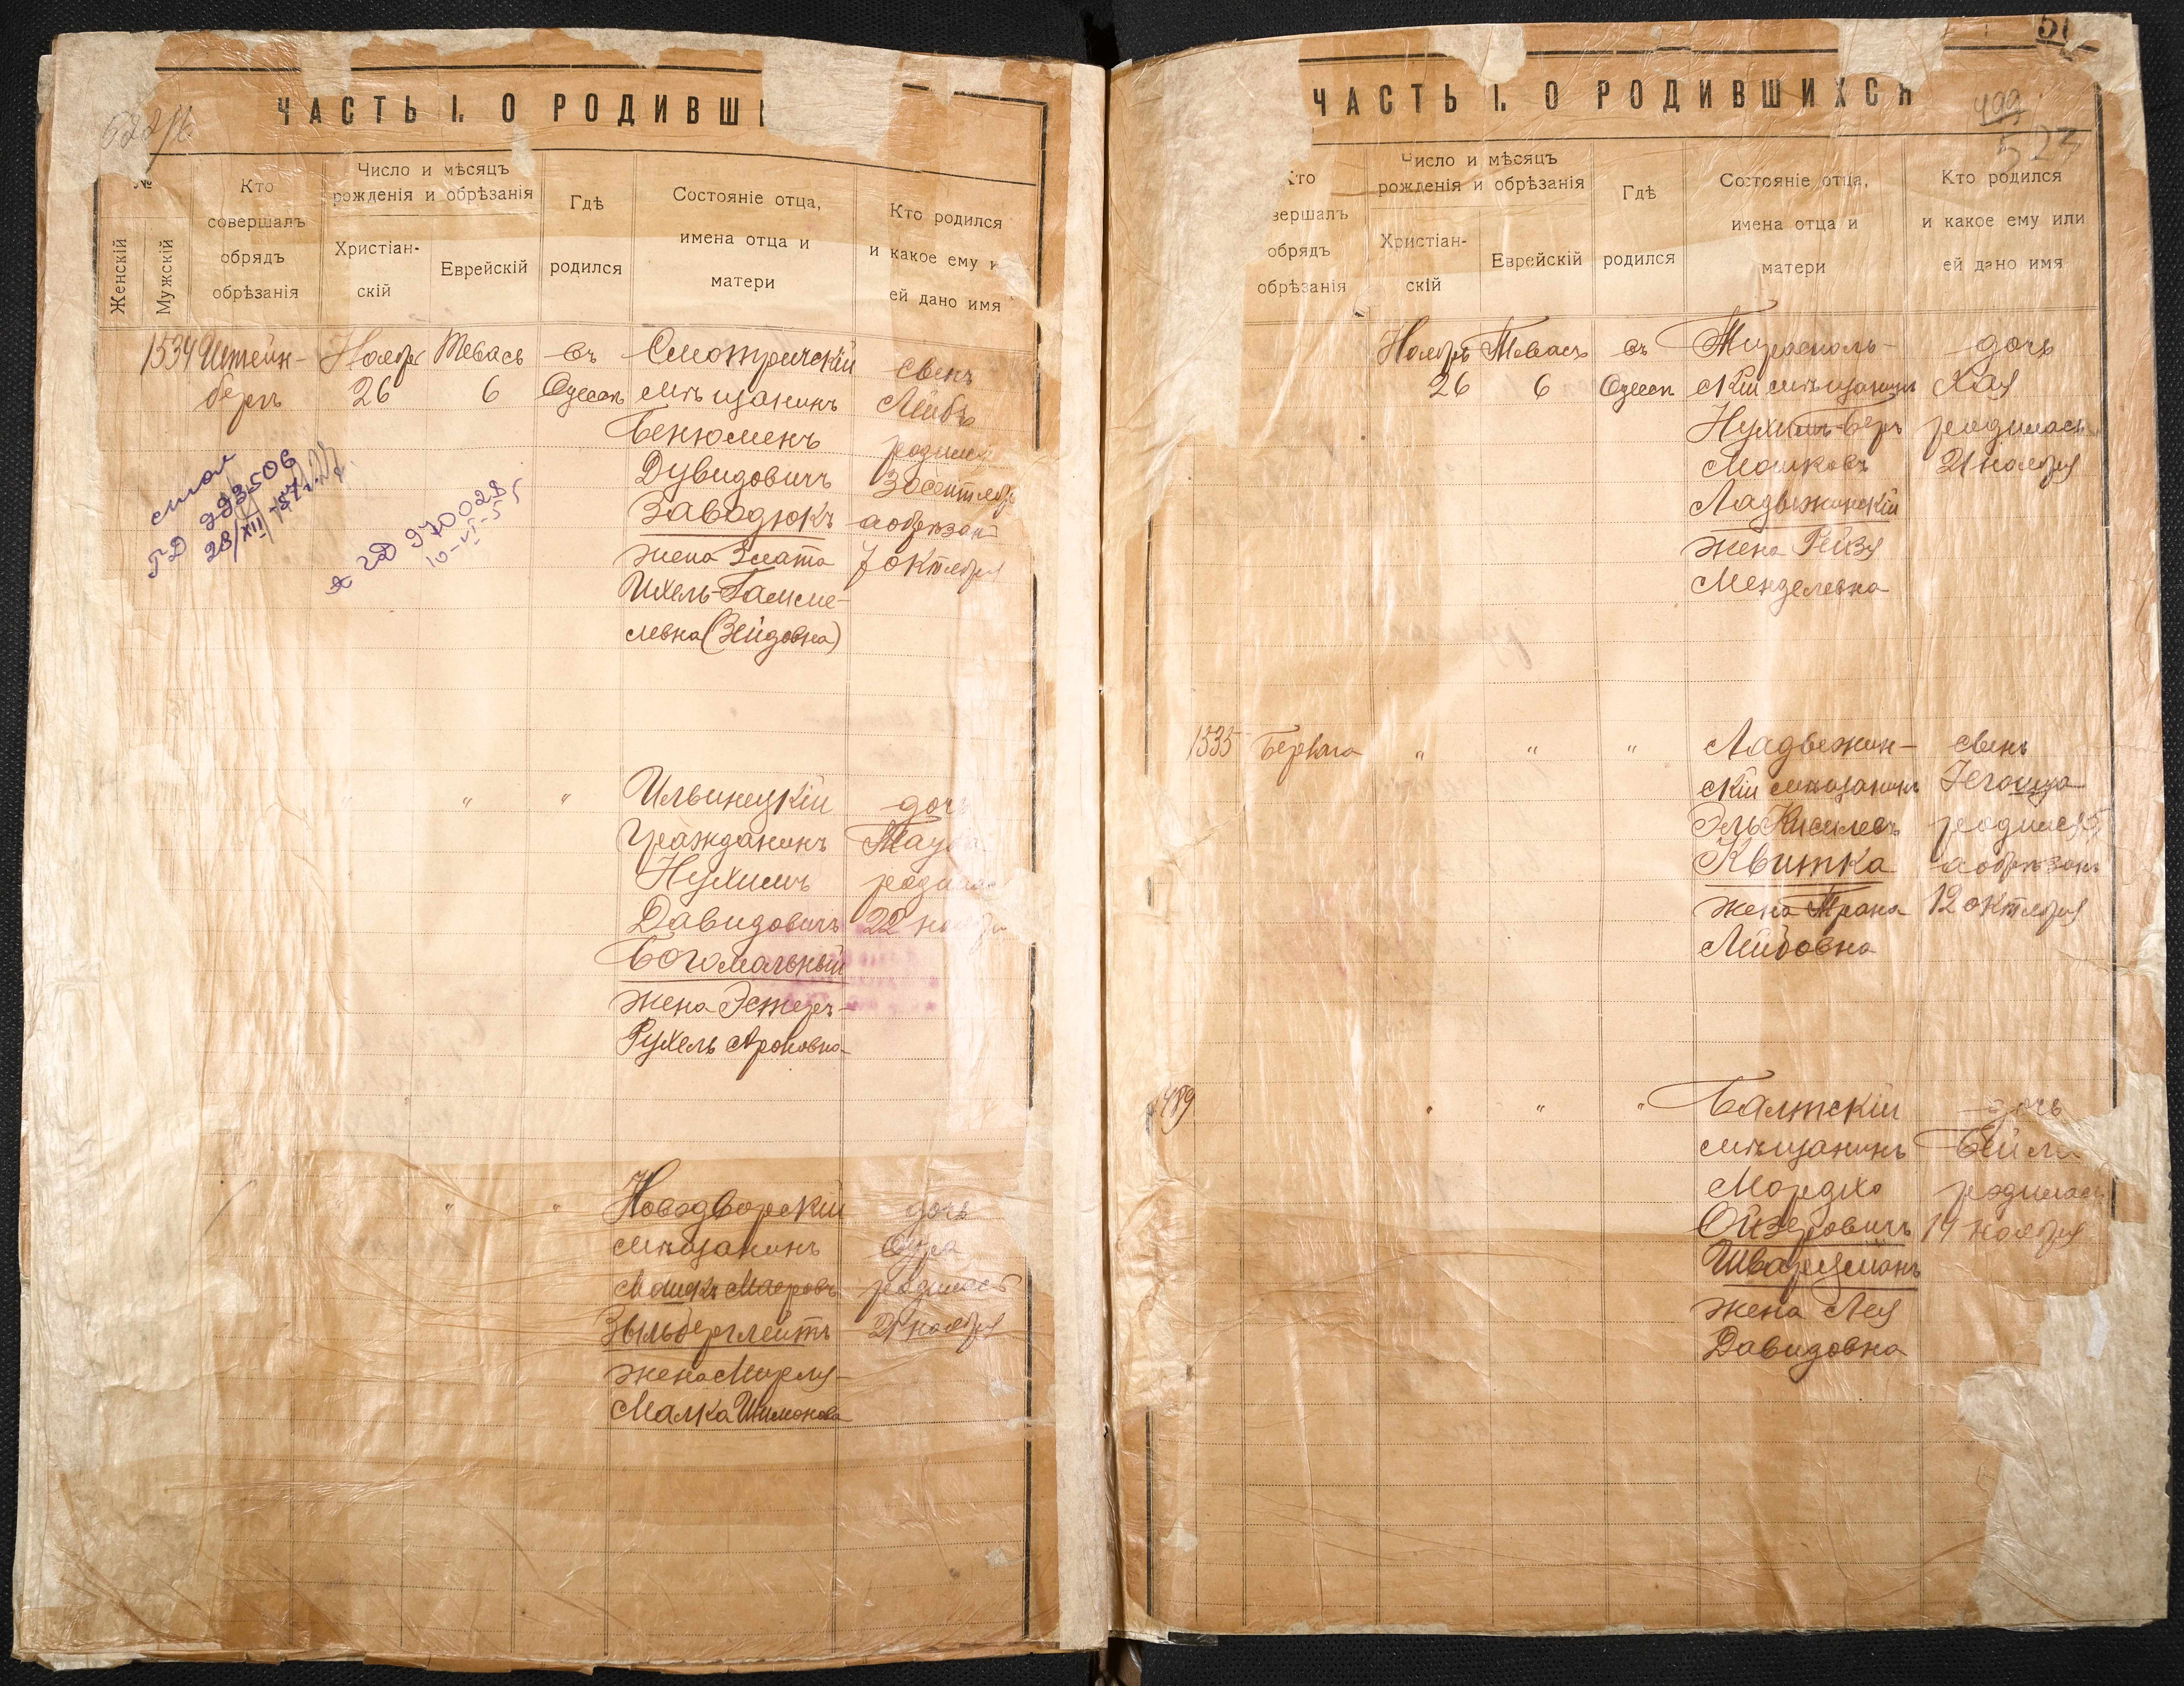 ЧАСТЬ I. О РОДИВШ
Женскій
Мужскій
Кто
совершалъ
обрядъ
обрѣзанія
Число и мѣсяцъ
рожденія и обрѣзанія
Христіан-
скій
Еврейскій
Гдѣ
родился
Состояніе отца,
имена отца и
матери
Кто родился
и какое ему и
ей дано имя
1534 Штейн-
бергъ
Ноябрь
26
Тевасъ
6
въ
Одессѣ
Смотричскій
мѣщанинъ
Бенюменъ
Дувидовичъ
Заводюкъ
жена Злата
Ихель-Гамше-
левна (Зейдовна)
сынъ
Лейбъ
родился
30 сентября
а обрѣзанъ
7 октября
смол
ГД 223506
28/XII-57г.
ГД 970028
10-VI-55
" " "
Ильинецкій
гражданинъ
Нухимъ
Давидовичъ
Богомольный
жена Эстеръ-
Рухель Ароновна
дочь
родилась
22 ноября
" " "
Новодворскій
мѣщанинъ
Мошко Мееровъ
Зыльберглейтъ
жена Мирля-
Малка Шимонова
дочь
родилась
21 ноября
51
ЧАСТЬ I. О РОДИВШИХСЯ
499
523
Кто
вершалъ
обрядъ
обрѣзанія
Число и мѣсяцъ
рожденія и обрѣзанія
Христіан-
скій
Еврейскій
Гдѣ
родился
Состояніе отца,
имена отца и
матери
Кто родился
и какое ему или
ей дано имя
Ноябрь
26
Тевасъ
6
въ
Одессѣ
Тирасполь-
скій мѣщанинъ
Нухимъ-Беръ
Мошковъ
Ладыжинскій
жена Рейзя
Менделевна
дочь
Хая
родилась
21 ноября
1535
" " "
Ладыжин-
скій мѣщанинъ
Эль Киселевъ
Квитка
жена Трана
Лейбовна
сынъ
Іегошуа
родился 5
а обрѣзанъ
12 октября
489
" " "
Балтскій
мѣщанинъ
Мордко
Ойзеровичъ
Шварцманъ
жена Лея
Давидовна
дочь
Бейла
родилась
14 ноября